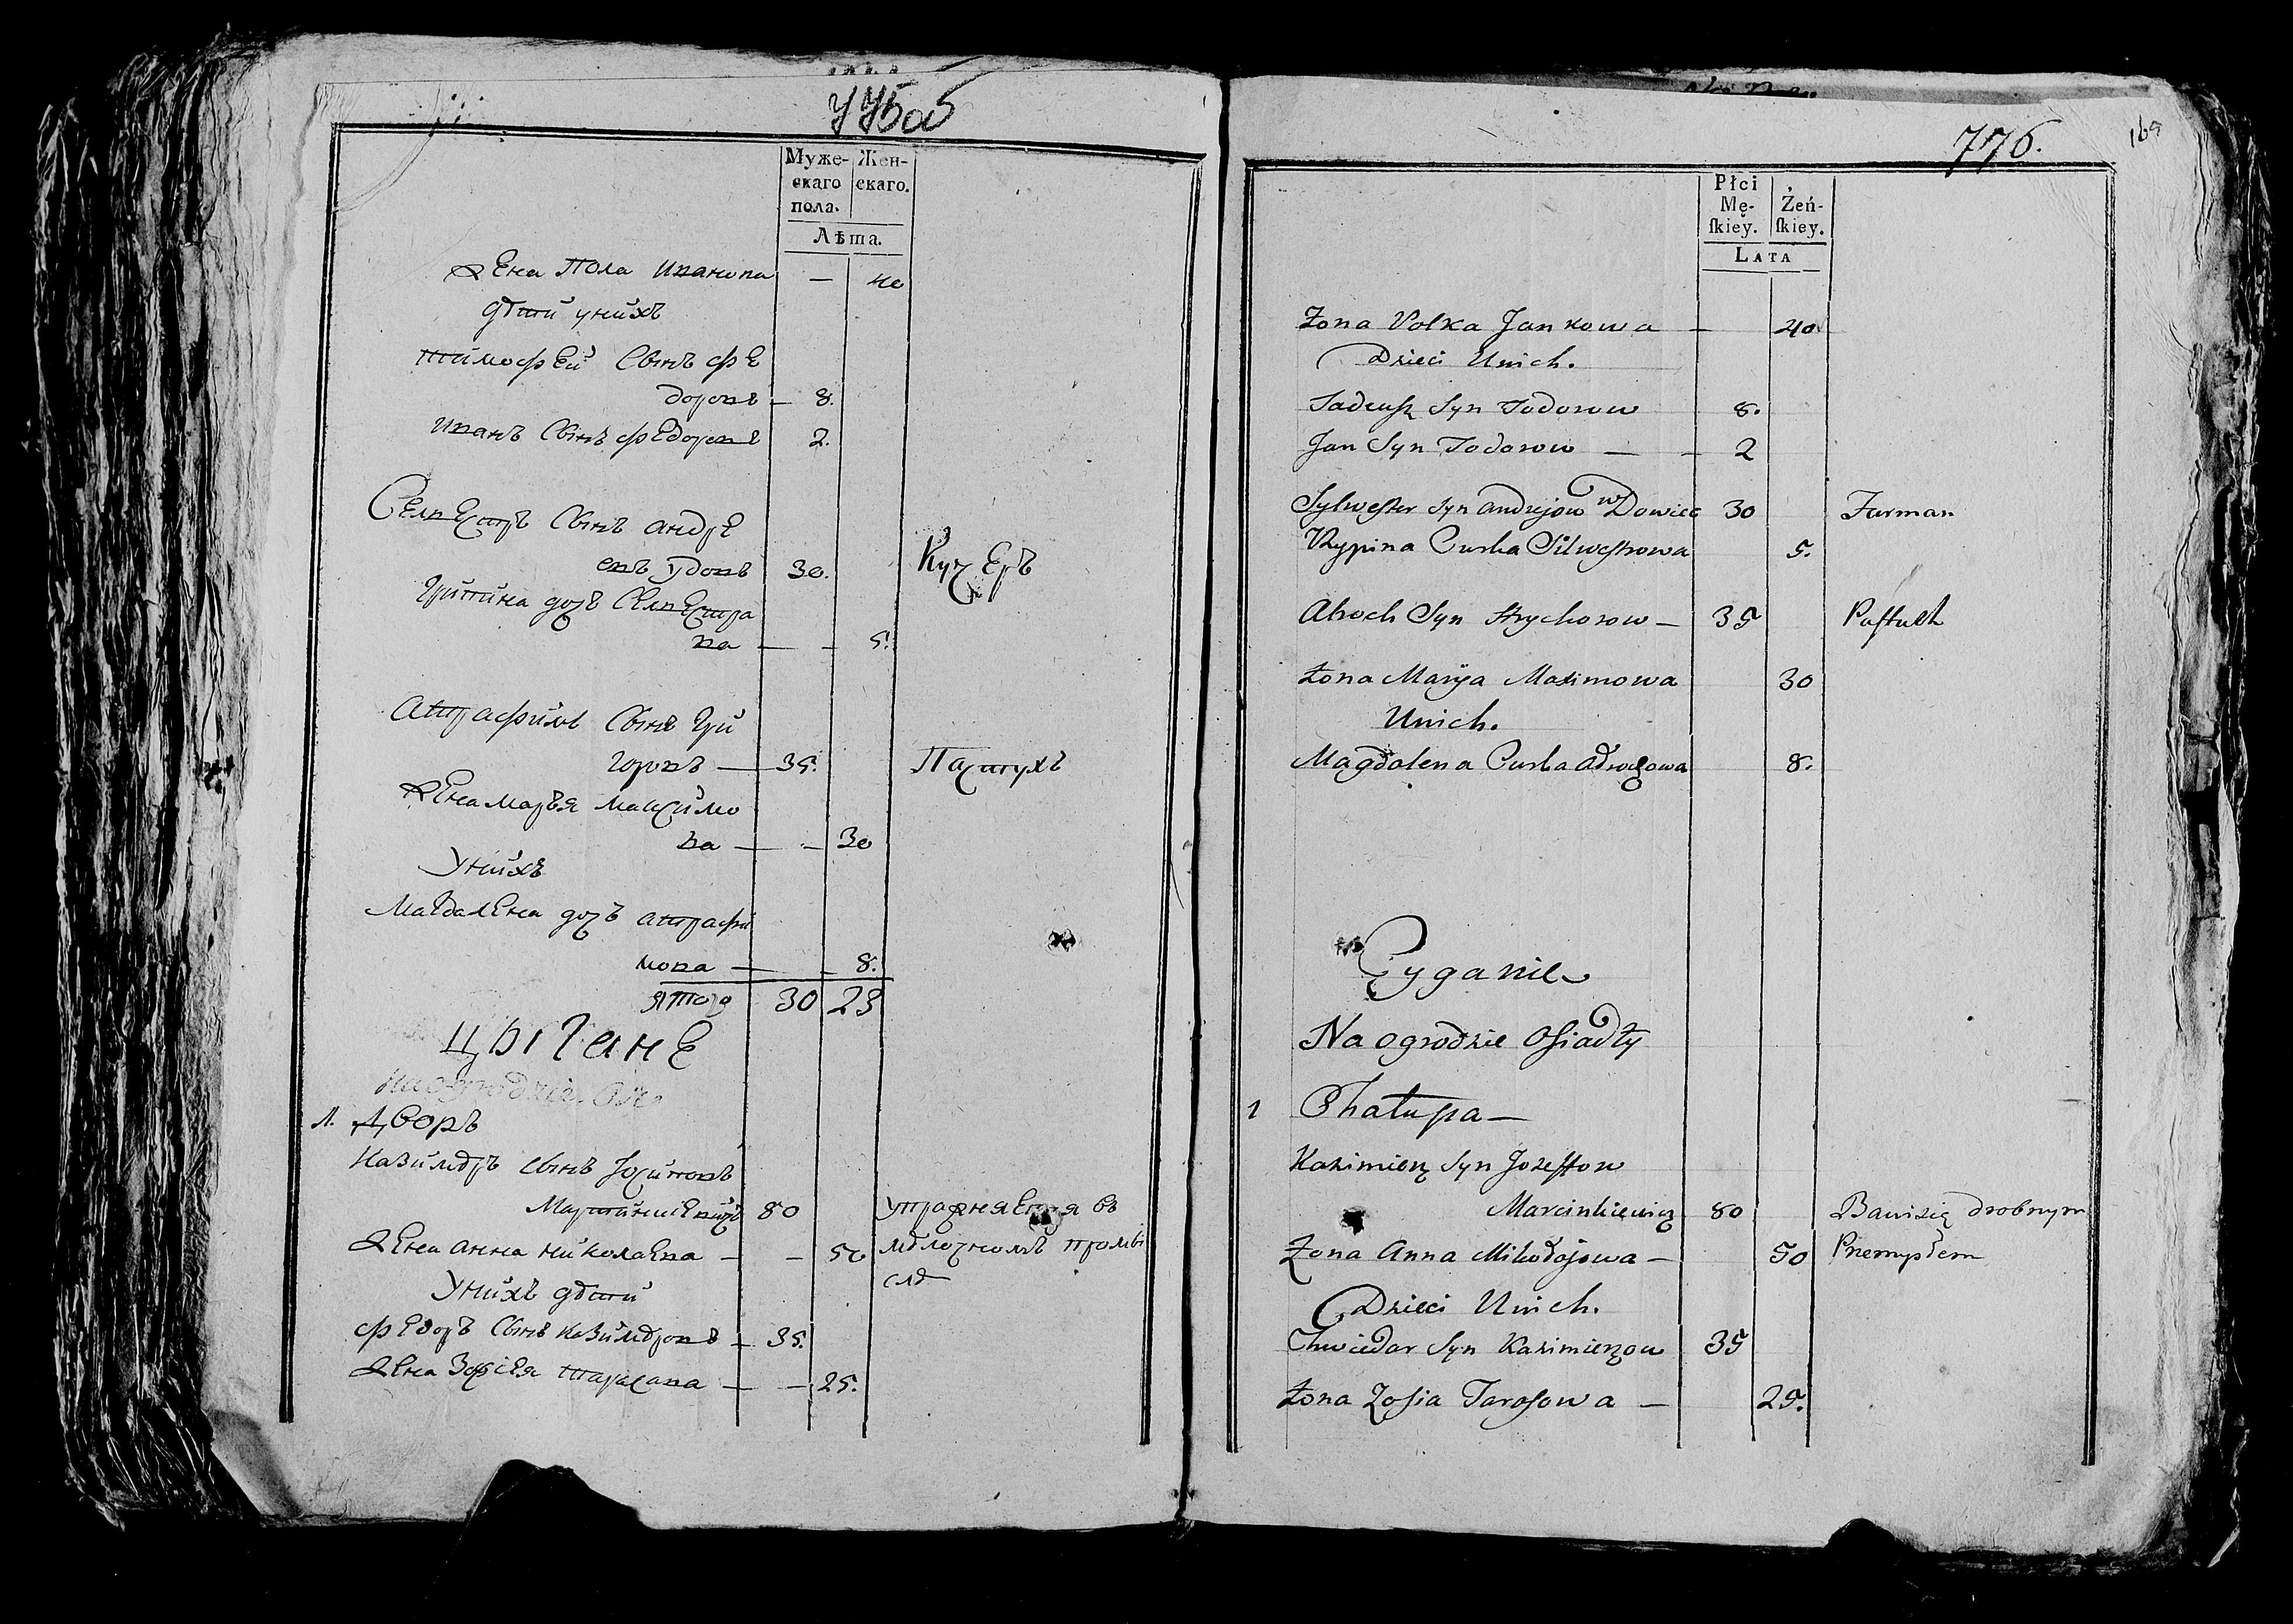 775об
Муже- Жен-
скаго скаго.
пола.
Лѣта.
Жена Пола Иванова — 40
дѣти унихъ
тимофей Сынъ фе
доровъ — 8.
Иванъ Сынъ федоровъ 2.
Селвестръ Сынъ андре
евъ удовъ 30. Кучеръ
Грипина дочъ Селвестро
ва — — 5.
Атрафимъ Сынъ Гри
горовъ — 35. Пастухъ
Жена Маръя Максимо
ва — — 30
Унихъ
Магдалена дочъ атрафи
мова — — 8.
Итого 30 23
Цыгане
Na ogrodzie
1. Дворъ
Казимиръ сынъ Іосиповъ
Мартинкевичъ 80 упражняется въ
Жена анна николаева — — 50 мѣлочномъ промы
Унихъ дѣти слѣ
федоръ Сынъ казимѣровъ — 35.
Жена Зофiея тарасова — — 25.
776.
169
Płci
Mę- Żeń-
ſkiey. ſkiey.
LATA
Żona Polka Jankowa — 40
Dzieci Unich.
Tadeusz Syn Todorow 8.
Jan Syn Todorow — — 2
Sylwester Syn Andrejow wDowiec 30 Furman
Krypina Curka Silwestrowa 5.
Atroch Syn Hrychorow — 35 Paſtuch
Żona Marya Maximowa 30
Unich.
Magdalena Curka Atrochowa 8.
Cyganie
Na ogrodzie Osiadły
1 Chałupa —
Kazimierz Syn Jozeffow
Marcinkiewicz 80 Bawi się drobnym
Żona Anna Mikołajowa — 50 Przemysłem
Dzieci Unich.
Chwiedar Syn Kazimierzow 35
Żona Zosia Tarasowa — 25.